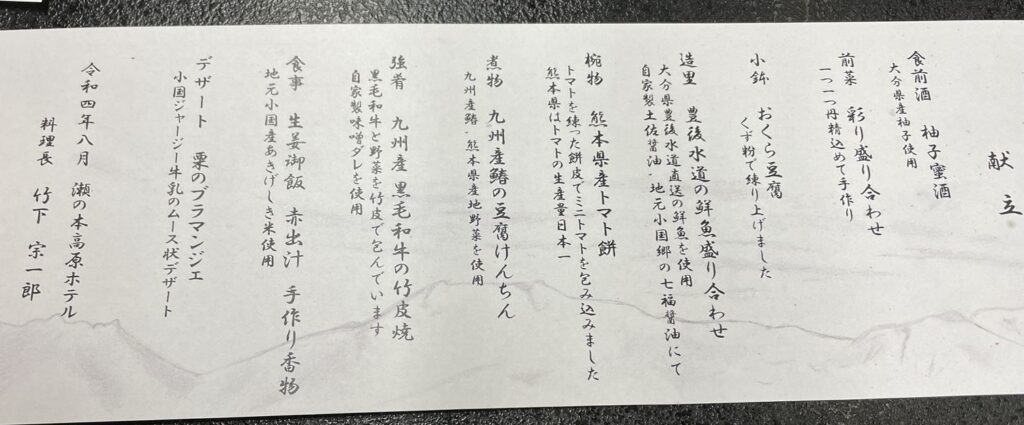 献立
食前酒　柚子蜜酒
大分県産柚子使用
前菜　彩り盛り合わせ
一つ一つ丹精込めて手作り
小鉢　おくら豆腐
くず粉で練り上げました
造里　豊後水道の鮮魚盛り合わせ
大分県豊後水道直送の鮮魚を使用
自家製土佐醤油・地元小国郷の七福醤油にて
椀物　熊本県産トマト餅
トマトを練った餅皮でミニトマトを包み込みました
熊本県はトマトの生産量日本一
煮物　九州産鰆の豆腐けんちん
九州産鰆・熊本県産地野菜を使用
強肴　九州産黒毛和牛の竹皮焼
黒毛和牛と野菜を竹皮で包んでいます
自家製味噌ダレを使用
食事　生姜御飯　赤出汁　手作り香物
地元小国産あきげしき米使用
デザート　栗のブラマンジェ
小国ジャージー牛乳のムース状デザート
令和四年八月　瀬の本高原ホテル
料理長　竹下　宗一郎